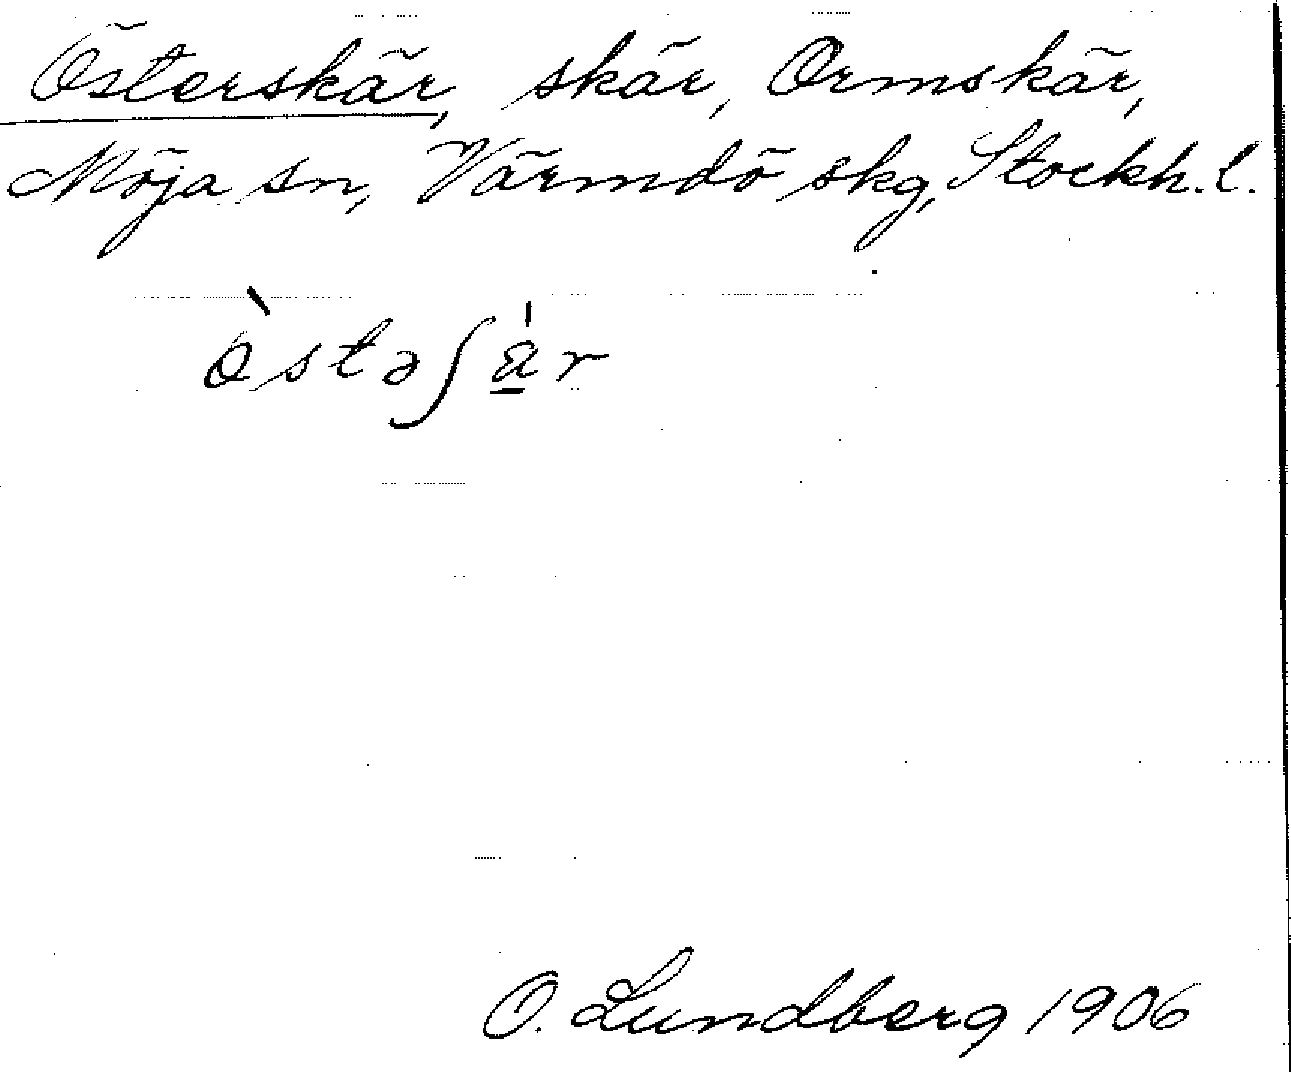 Österskär, skär, Ormskär,
Möja sn, Värmdö skg, Stockh. l.
östəʃär
O. Lundberg 1906